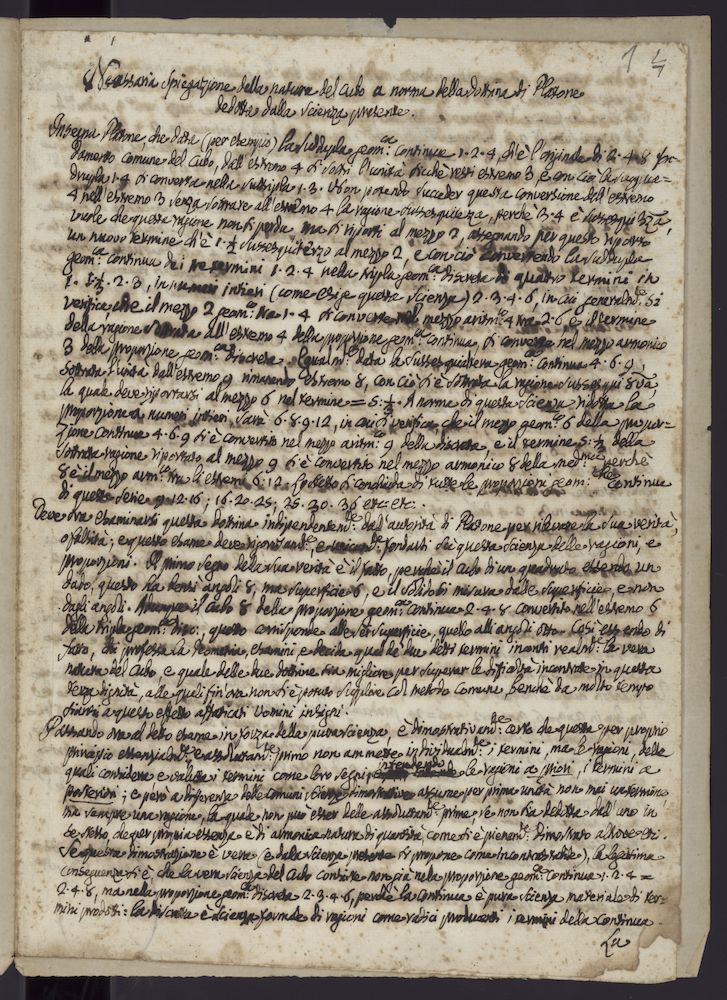 14
Necessaria Spiegazione della natura del Cubo a norma della dottrina di Platone
dedotta dalla scienza presente.
Insegna Platone, che data (per esempio) la sudupla geom.ca continua 1·2·4, ch'è l'originale di 2·4·8 fon-
damento comune del Cubo, dall'estremo 4 si sottri l'unità sicchè resti estremo 3 e con ciò la suqua=
drupla 1·4 si converta nella suttripla 1·3. Non potendo succeder questa conversione dell'estremo
4 nell'estremo 3 senza sottrare all'estremo 4 la ragione sussesquiterza, perchè 3·4 è sussesqui 3za,
vuole che questa ragione non si perda, ma si riporti al mezzo 2, assegnando per questo riporto
un nuovo termine ch'è 1·½ sussesquiterzo al mezzo 2, e con ciò convertendo la sudupla
geom.ca continua dei tre termini 1·2·4 nella tripla geom.ca discreta di quattro termini in
1·1½·2·3, in numeri intieri (come esige questa scienza) 2·3·4·6, in cui general.te si
verifica, che il mezzo 2 geom.co tra 1·4 si converte nel mezzo aritm.co 4 tra 2·6 e il termine
della ragione sottratta all'estremo 4 della proporzione geom.ca continua si converte nel mezzo armonico
3 della proporzione geom.ca discreta. Egualm.te data la sussesquialtera geom.ca continua 4·6·9,
sottratta l'unità dall'estremo 9 rimanendo estremo 8, con ciò si è sottratta la ragione sussesqui 8va,
la quale deve riportarsi al mezzo 6 nel termine = 5·⅓. A norma di questa scienza ridotta la
proporzione a numeri intieri sarà 6·8·9·12, in cui si verifica, che il mezzo geom.co 6 della propor-
zione continua 4·6·9 si è convertito nel mezzo aritm.co 9 della discreta, e il termine 5·⅓ della
sottratta ragione riportato al mezzo 9 6 è convertito nel mezzo armonico 8 della med.ma perchè
8 è il mezzo arm.co tra li estremi 6·12. Lo stesso si conchiuda di tutte le proporzioni geom.che continue
di queste serie 9·12·16; 16·20·25; 25·30·36 etc: etc:.
Deve ora esaminarsi questa dottrina independentem.te dall'autorità di Platone per rilevare la sua verità,
o falsità; e questo esame deve rigorosam.te, e unicam.te fondarsi su questa scienza delle ragioni, e
proporzioni. Il primo segno della sua verità è il fatto, perchè il Cubo di un quadrato essendo un
dado, questo ha bensì angoli 8, ma superficie 6, e il solido si misura dalle superficie, e non
dagli angoli. Adunque il Cubo 8 della proporzione geom.ca continua 2·4·8 convertito nell'estremo 6
della tripla geom.ca disc:, questo corrisponde alle sei superficie, quello alli angoli otto. Così essendo di
fatto, chi professa la Geometria, esamini e decida qual de' due detti termini incontri realm.te la vera
natura del Cubo, e quale delle due dottrine sia migliore per superar le difficoltà incontrate in questa
terza dignità, alle quali fin'ora non si è potuto supplire col metodo comune, benchè da molto tempo
siansi a questo effetto affaticati Uomini insigni.
Passando ora al detto esame in forza della pura scienza, è dimostrativam.te certo che questa per proprio
principio essenzialm.te e assolutam.te primo non ammette individualm.te i termini, ma le ragioni, delle
quali considera e valuta i termini come loro segni, intendendo le ragioni a priori, i termini a
posteriori; e però a differenza delle comuni scienze dimostrative assume per prima unità non mai un termine
ma sempre una ragione, la quale non può esser delle assolutam.te prime, se non sia dedotta dall'uno in
se stesso, da cui propria essenza è di armonica natura di quantità, come si è pienam.te dimostrato altrove etc:.
Se questa dimostrazione è vera (e dalla scienza presente si propone come incontrastabile), la legittima
conseguenza si è, che la vera scienza del Cubo consiste non già nella proporzione geom.ca continua 1·2·4=
2·4·8, ma nella proporzione geom.ca discreta 2·3·4·6, perchè la continua è pura scienza materiale di ter=
mini prodotti: la discreta è scienza formale di ragioni come radici producenti i termini della continua.
La